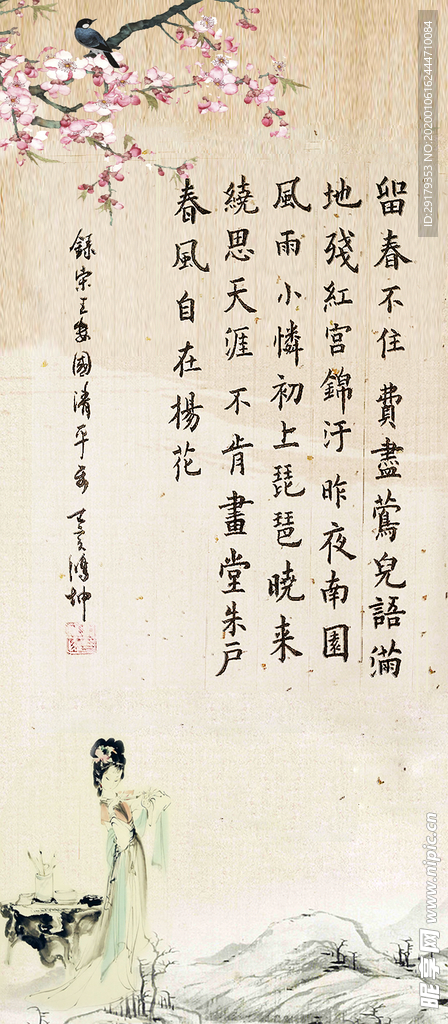 留春不住費盡鶯兒語滿
地殘紅宮錦汙昨夜南園
風雨小憐初上琵琶曉來
繞思天涯不肯畫堂朱戶
春風自在揚花
錄宋王安國清平乐 鴻坤
ID:29179353 NO:20200106162444710084
昵享网 www.nipic.cn